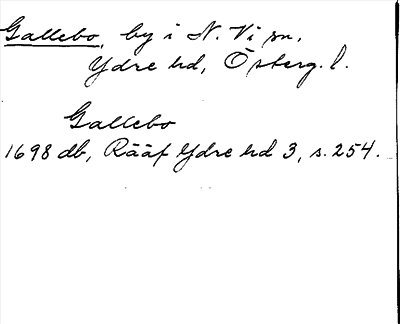 Gallebo, by i N. Vi sn,
Ydre hd, Österg. l.
Gallebo
1698 db, Rääf Ydre hd 3, s. 254.